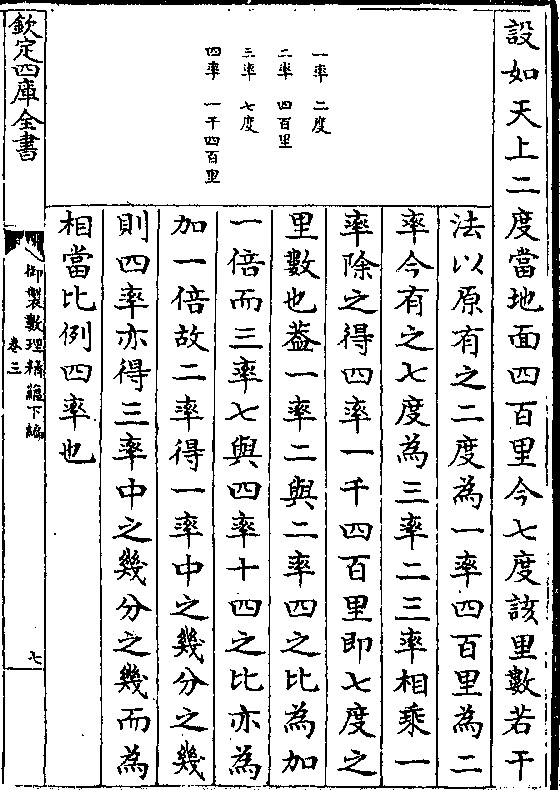 設如天上二度當地面四百里今七度該里數若干
一率　二度
二率　四百里
三率　七度
四率　一千四百里
法以原有之二度為一率四百里為二
率今有之七度為三率二三率相乘一
率除之得四率一千四百里即七度之
里數也葢一率二與二率四之比為加
一倍而三率七與四率十四之比亦為
加一倍故二率得一率中之幾分之幾
則四率亦得三率中之幾分之幾而為
相當比例四率也
欽定四庫全書
御製數理精蘊下編
卷三
七